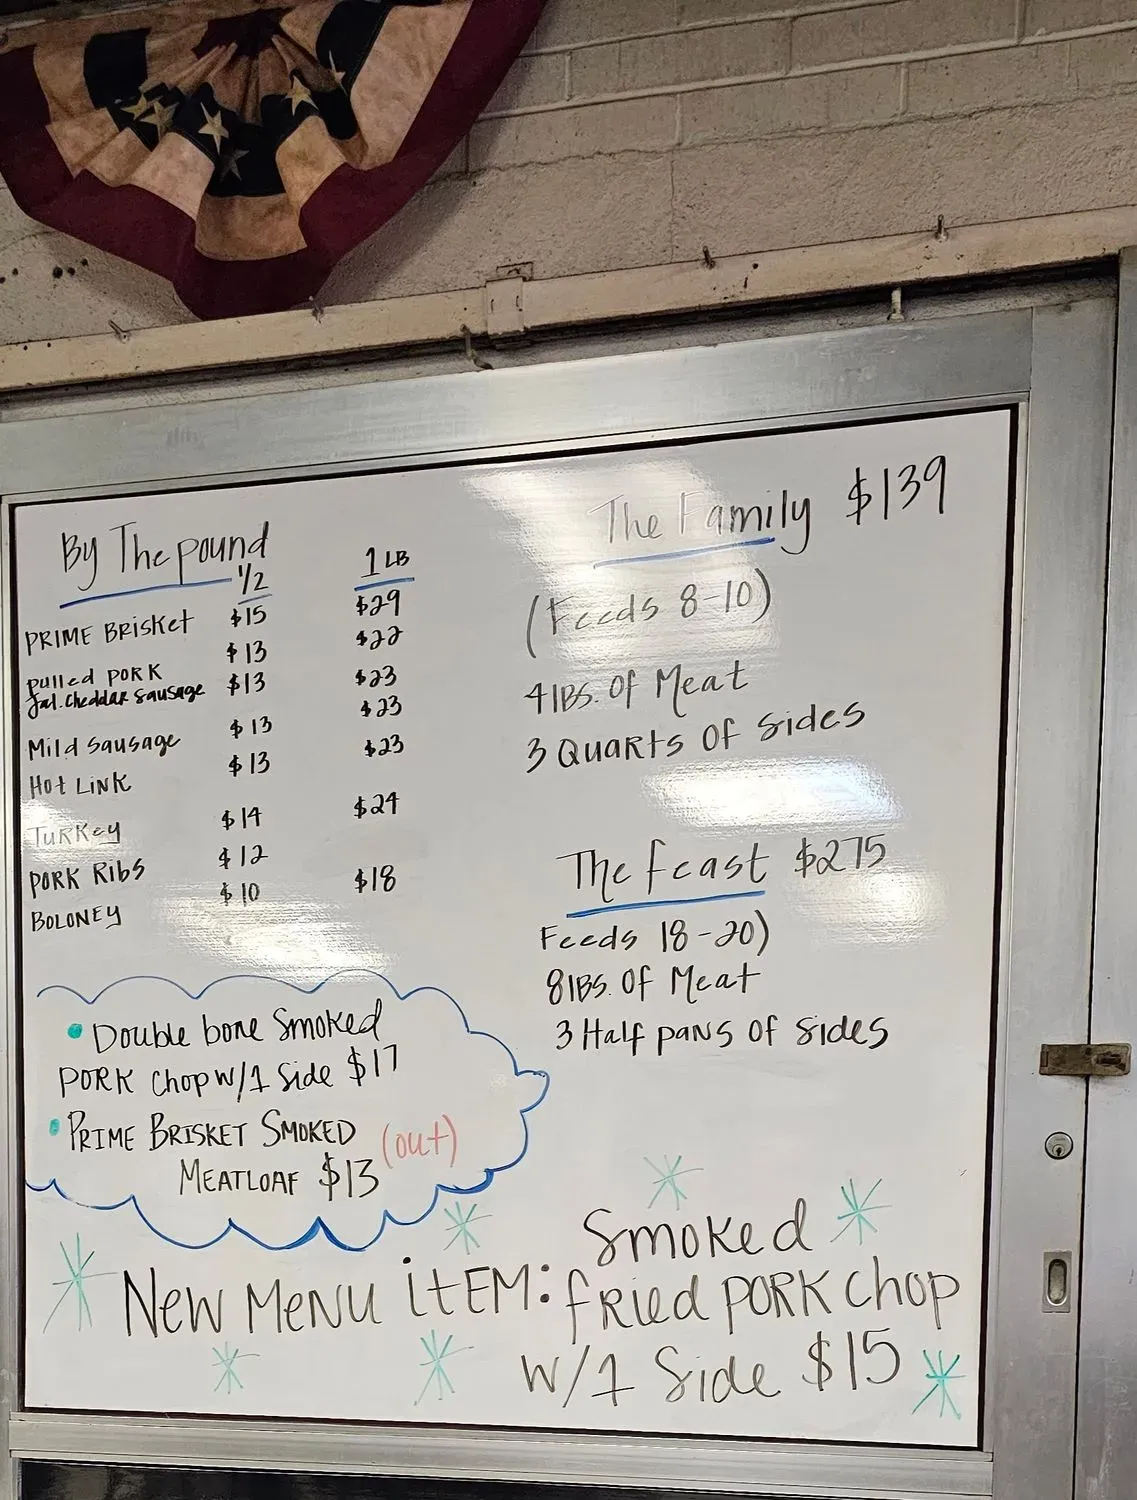 By The pound
1/2 1 LB
PRIME BRisket $15 $29
pulled PORK $13 $22
Jal. Cheddar Sausage $13 $23
Mild Sausage $13 $23
Hot Link $13 $23
TURKey $14 $24
PORK Ribs $12
BOLONEY $10 $18
• Double bone Smoked
PORK Chop w/1 Side $17
• PRIME BRISKET SMOKED (out)
MEATLOAF $13
The Family $139
(Feeds 8-10)
4 lBS. Of Meat
3 QUARTS OF Sides
The feast $275
Feeds 18-20)
8 lBS. Of Meat
3 Half pans of Sides
New Menu itEM: Smoked
fRied PORK Chop
w/1 Side $15